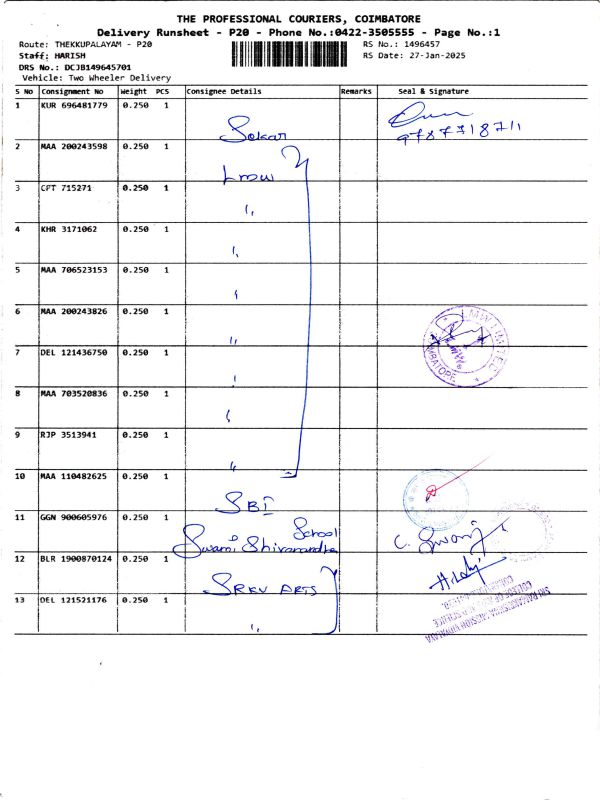 THE PROFESSIONAL COURIERS, COIMBATORE
Delivery Runsheet - P20 - Phone No.:0422-3505555 - Page No.:1
Route: THEKKUPALAYAM - P20 RS No.: 1496457
Staff: HARISH RS Date: 27-Jan-2025
DRS No.: DCJB149645701
Vehicle: Two Wheeler Delivery
S No Consignment No Weight PCS Consignee Details Remarks Seal & Signature
1 KUR 696481779 0.250 1
Sokar 9787718711
2 MAA 200243598 0.250 1
Lmw
3 CPT 715271 0.250 1
"
4 KHR 3171062 0.250 1
"
5 MAA 706523153 0.250 1
"
6 MAA 200243826 0.250 1
"
7 DEL 121436750 0.250 1
"
8 MAA 703520836 0.250 1
"
9 RJP 3513941 0.250 1
"
10 MAA 110482625 0.250 1
SBI
11 GGN 900605976 0.250 1
School
Swami Shivanandha
12 BLR 1900870124 0.250 1
SRKV ARTS
13 DEL 121521176 0.250 1
"